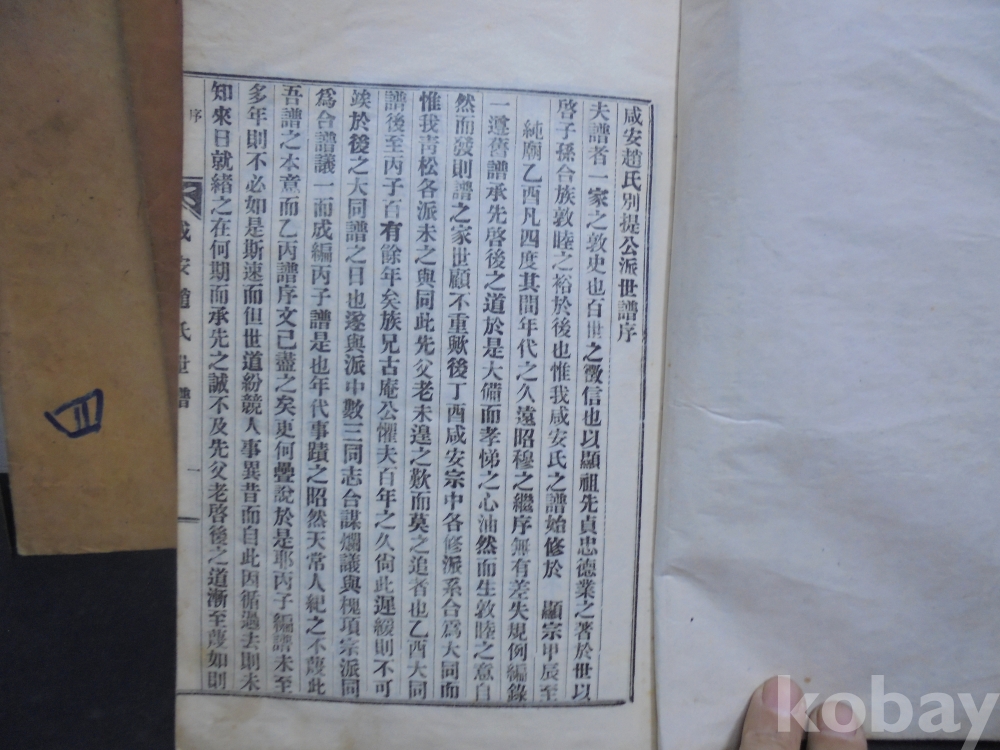 咸安趙氏別提公派世譜序
夫譜者一家之敦史也百世之徵信也以顯祖先貞忠德業之著於世以
啓子孫合族敦睦之裕於後也惟我咸安氏之譜始修於 顯宗甲辰至
純廟乙酉凡四度其間年代之久遠昭穆之繼序無有差失規例編錄
一遵舊譜承先啓後之道於是大備而孝悌之心油然而生敦睦之意自
然而發則譜之家世顧不重歟後丁酉咸安宗中各修派系合爲大同而
惟我靑松各派未之與同此先父老未遑之歎而莫之追者也乙酉大同
譜後至丙子百有餘年矣族兄古庵公懼夫百年之久尙此遲緩則不可
竢於後之大同譜之日也遂與派中數三同志合謀爛議與槐項宗派同
爲合譜議一而成編丙子譜是也年代事蹟之昭然天常人紀之不蔑此
吾譜之本意而乙丙譜序文已盡之矣更何疊說於是耶丙子編譜未至
多年則不必如是斯速而但世道紛競人事異昔而自此因循過去則未
知來日就緖之在何期而承先之誠不及先父老啓後之道漸至蔑如則
序
咸安趙氏世譜
一
11
kobay